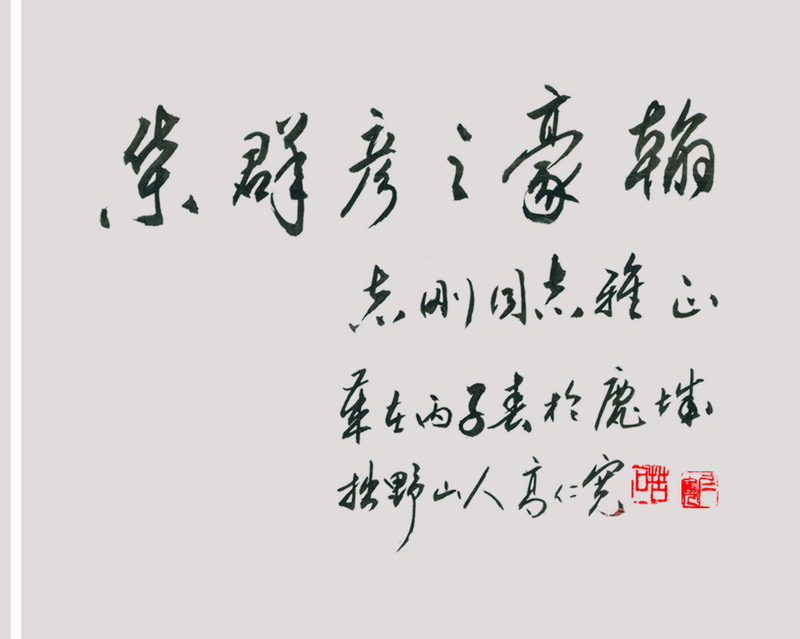 集群彦之豪翰
志刚同志雅正
歲在丙子春於鹿城
拙野山人高仁宽